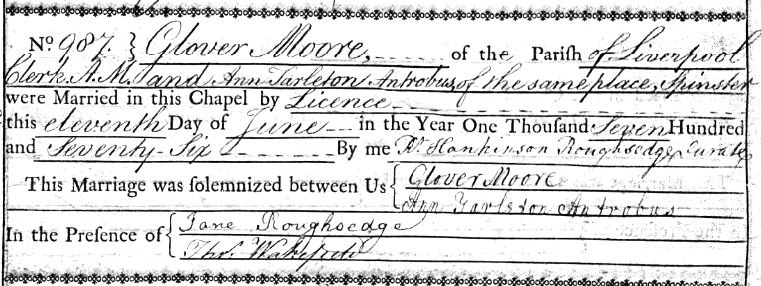 No. 987. } Glover Moore, of the Parish of Liverpool
Clerk A.M. and Ann Tarleton Antrobus, of the same place, Spinster
were Married in this Chapel by Licence
this eleventh Day of June in the Year One Thousand Seven Hundred
and Seventy-Six By me Rt. Hankinson Roughsedge Curate
This Marriage was solemnized between Us { Glover Moore
Ann Tarlston Antrobus
In the Presence of { Jane Roughsedge
Thos.